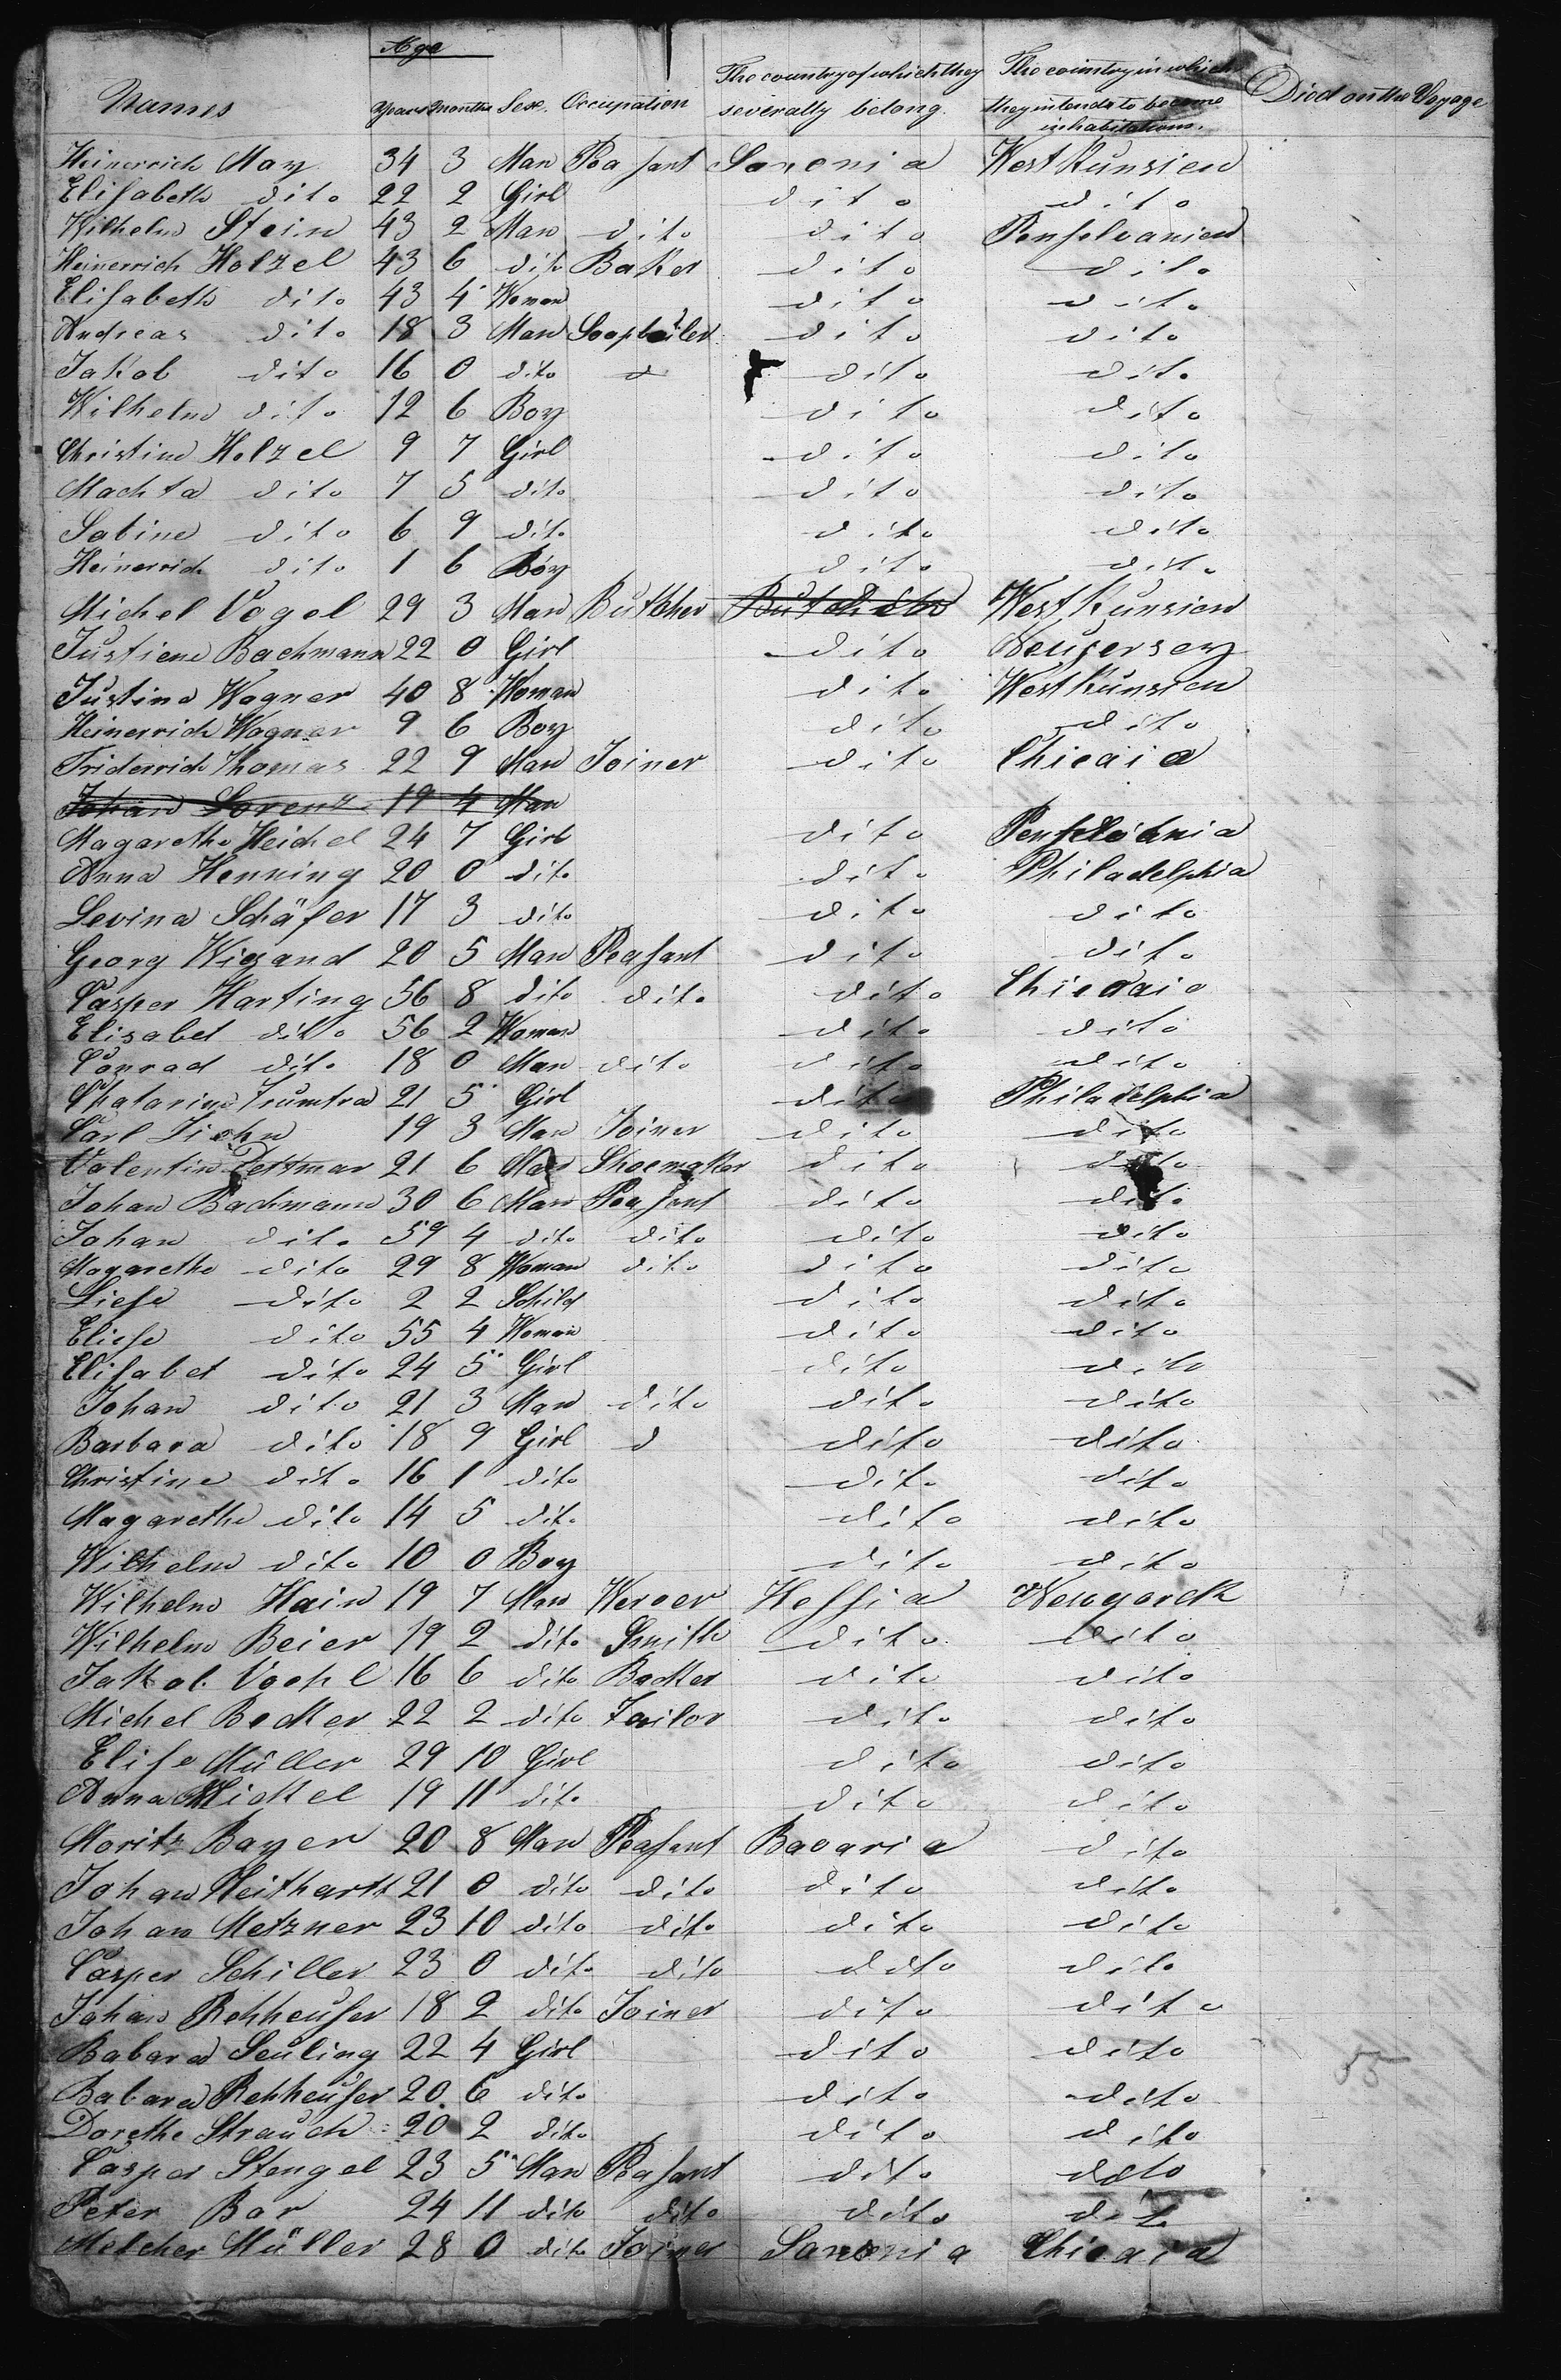 Age
Names Years Months Sex. Occupation The country of which they severally belong. The country in which they intends to become inhabitations. Died on the Voyage
Heinerrich May 34 3 Man Peasant Saxonia West Kunsien
Elisabeth dito 22 2 Girl dito dito
Wilhelm Stein 43 2 Man dito dito Penselvanien
Heinerrich Holzel 43 6 dito Baker dito dito
Elisabeth dito 43 4 Woman dito dito
Andreas dito 18 3 Man Soapboiler dito dito
Jakob dito 16 0 dito d dito dito
Wilhelm dito 12 6 Boy dito dito
Christine Holzel 9 7 Girl dito dito
Machta dito 7 5 dito dito dito
Sabine dito 6 9 dito dito dito
Heinerrich dito 1 6 Boy dito dito
Michel Vogel 29 3 Man Butkher Butcher West Kunsien
Justiene Bachmann 22 0 Girl dito Neujersey
Justina Wagner 40 8 Woman dito West Kunsien
Heinerrich Wagner 9 6 Boy dito dito
Friderrich Thomas 22 9 Man Joiner dito Chicaia
Johan Lorenz 19 4 Man
Magarethe Heichel 24 7 Girl dito
Anna Henning 20 0 dito dito Philadelphia
Levina Schäfer 17 3 dito dito dito
Georg Wigand 20 5 Man Peasant dito dito
Casper Harting 56 8 dito dito dito Chicaia
Elisabet dito 56 2 Woman dito dito
Conrad dito 18 0 Man dito dito dito
Chatarine 21 5 Girl dito Philadelphia
Carl 19 3 Man Joiner dito dito
Valentin Dettmar 21 6 Man Shoemaker dito dito
Johan Bachmann 30 6 Man Peasant dito dito
Johan dito 59 4 dito dito dito dito
Magarethe dito 29 8 Woman dito dito dito
Liese dito 2 2 Schild dito dito
Eliese dito 55 4 Woman dito dito
Elisabet dito 24 5 Girl dito dito
Johan dito 21 3 Man dito dito dito
Barbara dito 18 9 Girl d dito dito
Christine dito 16 1 dito dito dito
Magarethe dito 14 5 dito dito dito
Wilhelm dito 10 0 Boy dito dito
Wilhelm Hain 19 7 Man Werver Hessia Newyorck
Wilhelm Beier 19 2 dito Smith dito dito
Jakob Voehl 16 6 dito Backer dito dito
Michel Becker 22 2 dito Tailor dito dito
Elise Müller 29 10 Girl dito dito
Anna Mickel 19 11 dito dito dito
Moritz Bayer 20 8 Man Peasant Bavaria dito
Johan Neithartt 21 0 dito dito dito dito
Johan Metzner 23 10 dito dito dito dito
Casper Schiller 23 0 dito dito dito dito
Johan Rehheuser 18 2 dito Joiner dito dito
Babara Seuling 22 4 Girl dito dito
Babara Rehheuser 20 6 dito dito dito
Dorethe Strauch 20 2 dito dito dito
55
Casper Stengel 23 5 Man Peasant dito dito
Peter Bar 24 11 dito dito dito dit
Melcher Müller 28 0 dito Joiner Saxonia Chicaia